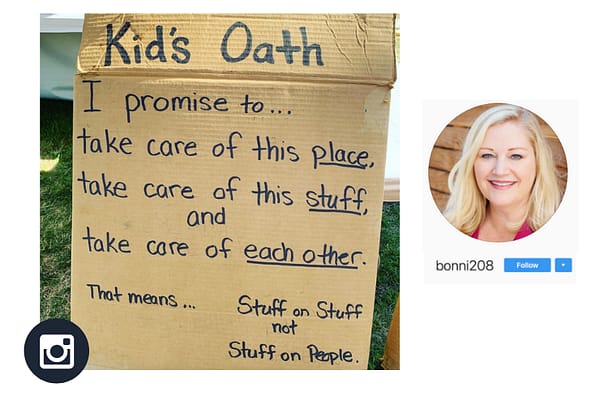 Kid's Oath
I promise to...
take care of this place,
take care of this stuff,
and
take care of each other.
That means...
Stuff on Stuff
not
Stuff on People.
bonni208
Follow